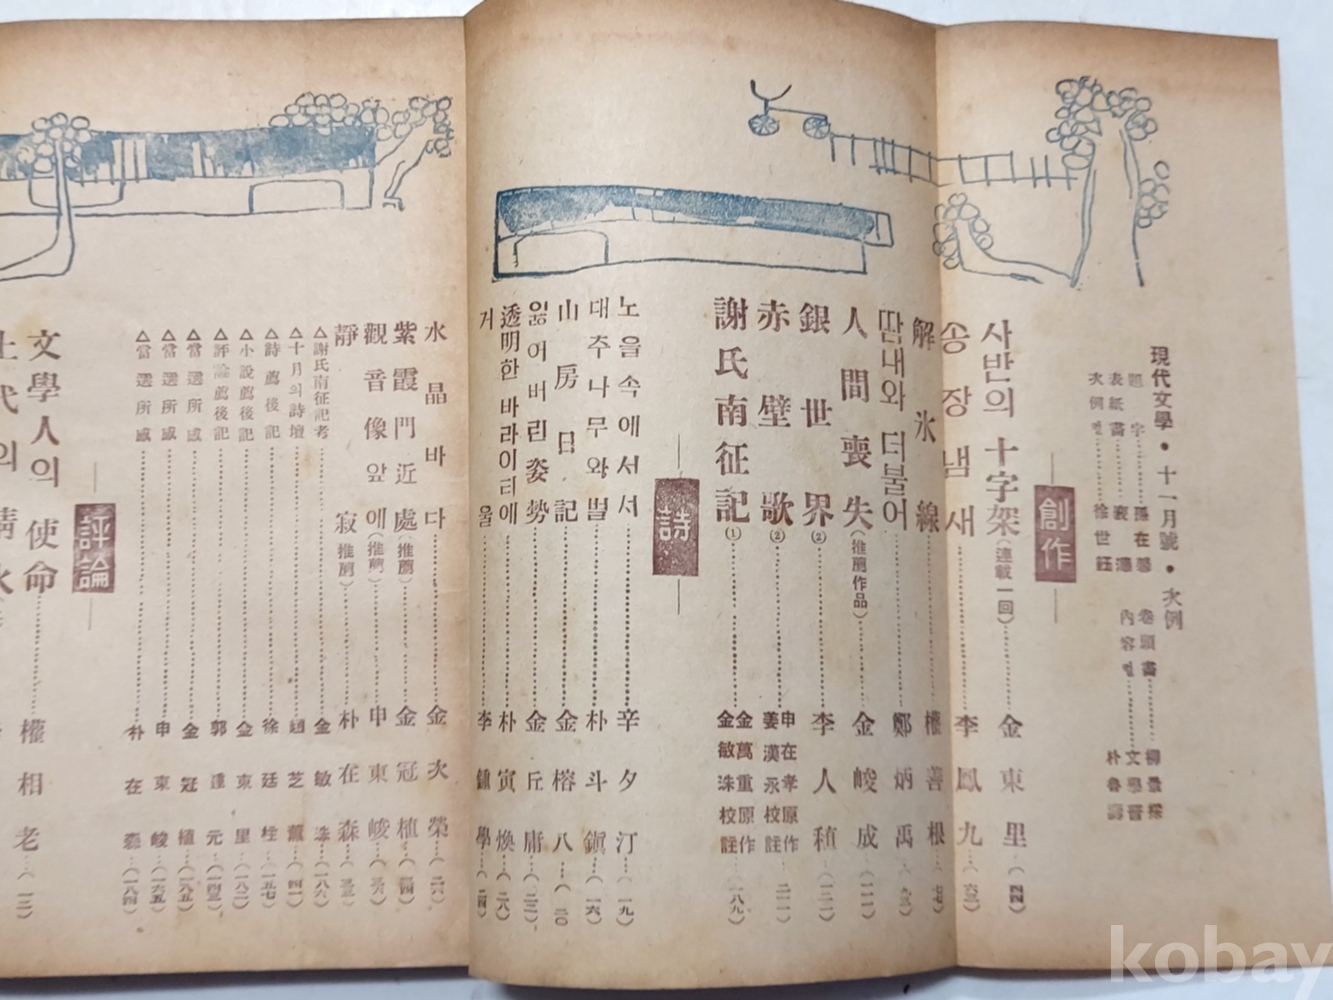 現代文學・十一月號・次例
題字 孫在馨
表紙畵
次例컽 徐世鈺
卷頭畵 柳景埰
內容컽 文學晋
朴魯壽
創作
사반의 十字架(連載一回) 金東里 (四四)
송장냄새 李鳳九 (六三)
解氷線 權善根 (七七)
땀내와 더불어 鄭炳禹
人間喪失(推薦作品) 金峻成 (一一一)
銀世界(2) 李人稙 (一二一)
赤壁歌(2) 申在孝原作 姜漢永校註 (二一一)
謝氏南征記(1) 金萬重原作 金敏洙校註 (一八九)
詩
노을속에서서 辛夕汀 (一九)
대추나무와벌 朴斗鎭 (一六)
山房日記 金榕八 (二〇)
잃어버린姿勢 金丘庸 (二三)
透明한 바라이티에 朴寅煥 (二八)
겨울 李鍾學 (二四)
水晶바다 金次榮 (二六)
紫霞門近處(推薦) 金冠植 (三四)
觀音像앞에(推薦) 申東峻 (三六)
靜寂(推薦) 朴在森 (三五)
△謝氏南征記考 金敏洙 (一八六)
△十月의詩壇 趙芝薰 (四一)
△詩薦後記 徐廷柱 (一五七)
△小說薦後記 金東里 (一八二)
△評論薦後記 郭鍾元 (一四五)
△當選所感 金冠植 (一八五)
△當選所感 申東峻 (一六五)
△當選所感 朴在森 (一八四)
評論
文學人의 使命 權相老 (一三)
kobay